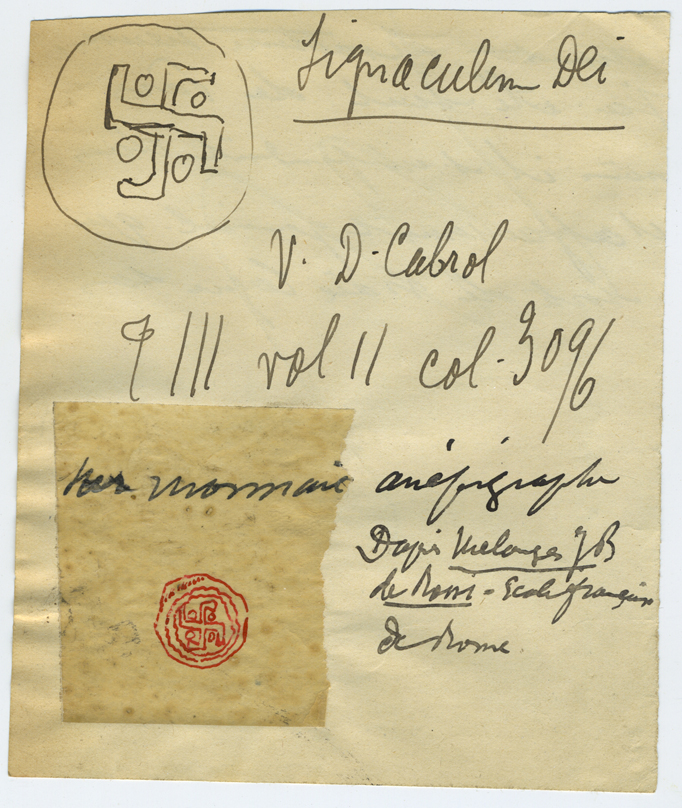 Signaculum Dei
V. D. Cabrol
T III vol II col. 3096
sur monnaie anépigraphe
Dapès Mélanges J B
de Rossi - Ecole française
de Rome.